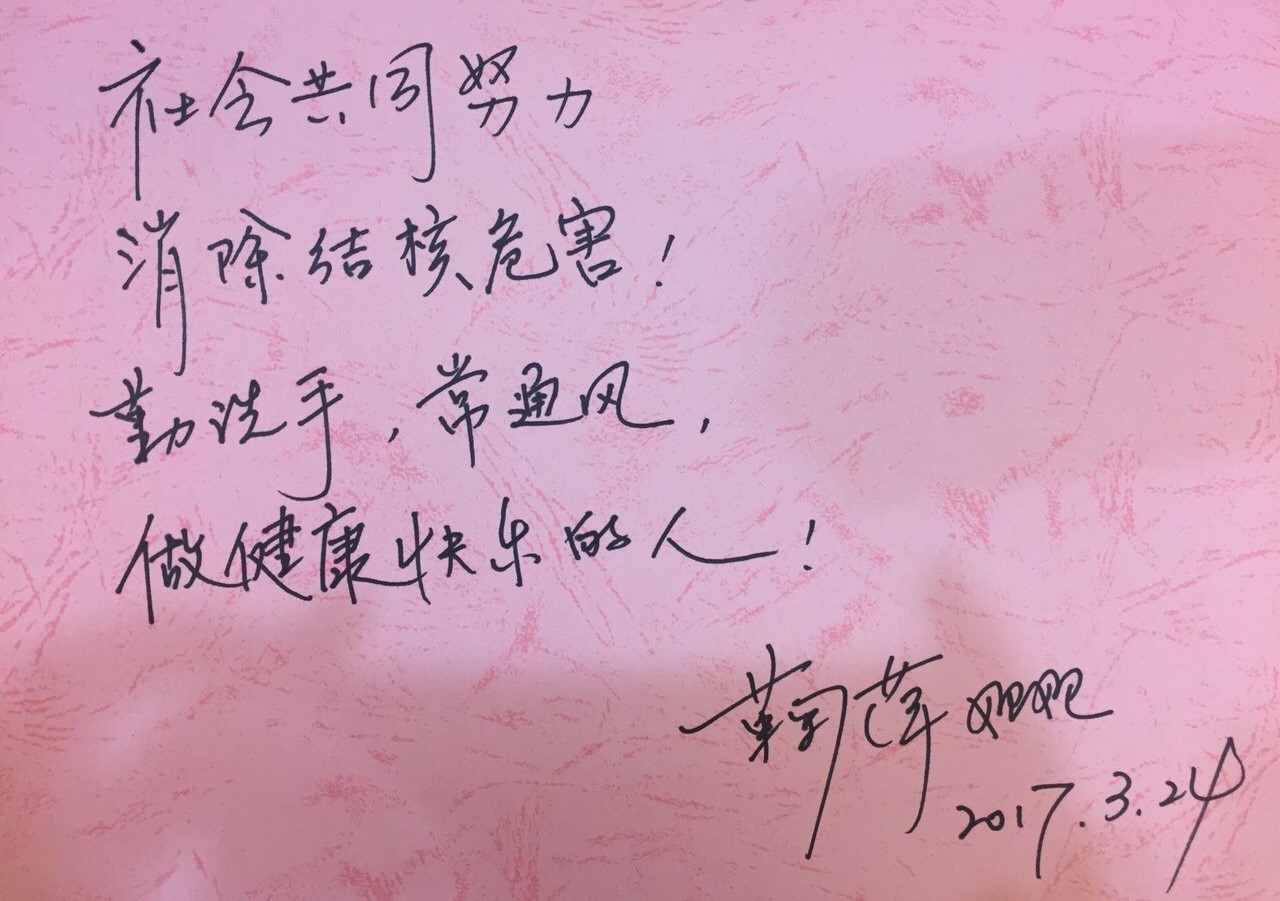 社会共同努力
消除结核危害!
勤洗手,常通风,
做健康快乐的人!
鞠萍姐姐
2017.3.24